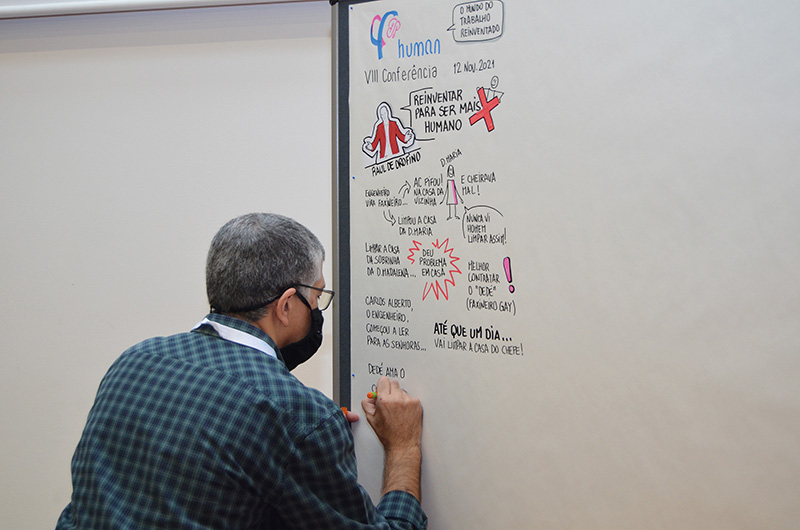 O MUNDO DO
TRABALHO
REINVENTADO
human
VIII Conferência
12 NOV. 2021
REINVENTAR
PARA SER MAIS
HUMANO
RAUL DE OROFINO
D. MARIA
ENGENHEIRO
VIRA FAXINEIRO...
AC PIFOU!
NA CASA DA
VIZINHA
E CHEIRAVA
MAL!
LIMPOU A CASA
DA D. MARIA
NUNCA VI
HOMEM
LIMPAR ASSIM!
LIMPAR A CASA
DA SOBRINHA
DA D. MADALENA...
DEU
PROBLEMA
EM CASA
MELHOR
CONTRATAR
O "DEDÉ"
(FAXINEIRO GAY)
!
CARLOS ALBERTO,
O ENGENHEIRO,
COMEÇOU A LER
PARA AS SENHORAS...
ATÉ QUE UM DIA...
VAI LIMPAR A CASA DO CHEFE!
DEDÉ AMA O